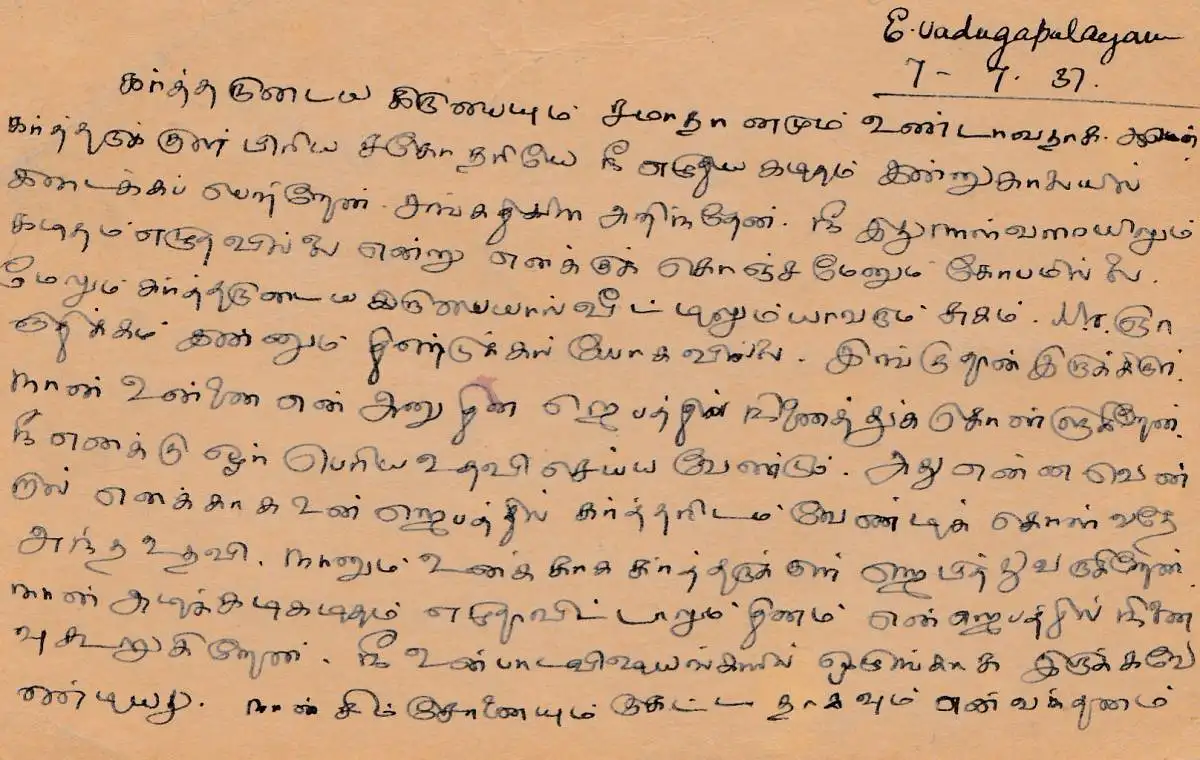 E. Vadugapalayam
7 - 7. 37.
கர்த்தருடைய கிருபையும் சமாதானமும் உண்டாவதாக. ஆமென்
கர்த்தருக்குள் பிரிய சகோதரியே நீ எழுதிய கடிதம் இன்று காலையில்
கிடைக்கப் பெற்றேன். சங்கதிகள் அறிந்தேன். நீ இதுநாள்வரையிலும்
கடிதம் எழுதவில்லை என்று எனக்குக் கொஞ்சமேனும் கோபமில்லை.
மேலும் கர்த்தருடைய கிருபையால் வீட்டிலும் யாவரும் சுகம். Mr. ஞா
இன்னும் திண்டுக்கல் போகவில்லை. இங்குதான் இருக்கிறார்.
நான் உன்னை என் அனுதின ஜெபத்தில் நினைத்துக் கொள்ளுகிறேன்.
நீ எனக்கு ஓர் பெரிய உதவி செய்ய வேண்டும். அது என்னவென்
றால் எனக்காக உன் ஜெபத்தில் கர்த்தரிடம் வேண்டிக் கொள்வதே
அந்த உதவி. நானும் உனக்காக கர்த்தருக்குள் ஜெபித்து வருகிறேன்.
நான் அடிக்கடி கடிதம் எழுதாவிட்டாலும் தினம் என் ஜெபத்தில் நினை
வு கூறுகிறேன். நீ உன் பாடவிஷயங்களில் ஒழுங்காக இருக்கவே
ண்டியது. நான் சிம்சோனையும் கேட்டதாகவும் என்